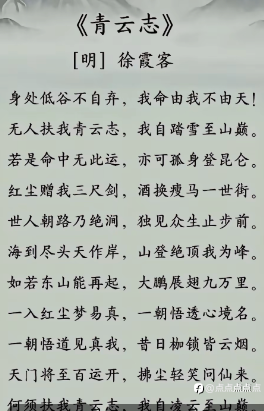 《青云志》
[明] 徐霞客
身处低谷不自弃，我命由我不由天！
无人扶我青云志，我自踏雪至山巅。
若是命中无此运，亦可孤身登昆仑。
红尘赠我三尺剑，酒换瘦马一世街。
世人朝路乃绝涧，独见众生止步前。
海到尽头天作岸，山登绝顶我为峰。
如若东山能再起，大鹏展翅九万里。
一入红尘梦易真，一朝悟透心境名。
一朝悟道见真我，昔日枷锁皆云烟。
天门将至百运开，拂尘轻笑问仙来。
何须扶我青云志，我自凌云至山巅